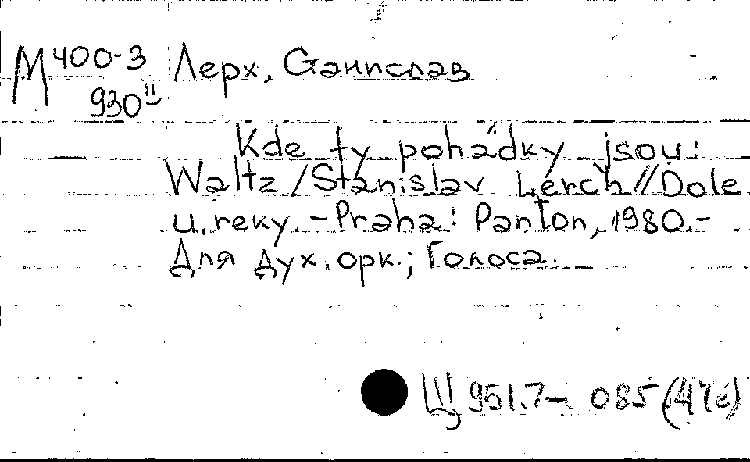 М 400-3 Лерх, Станислав
930 II
Kde ty pohádky jsou:
Waltz / Stanislav Lerch // Dole
u řeky. - Praha: Panton, 1980. -
Для дух. орк.; Голоса.
Щ 951.7-085 (4Че)